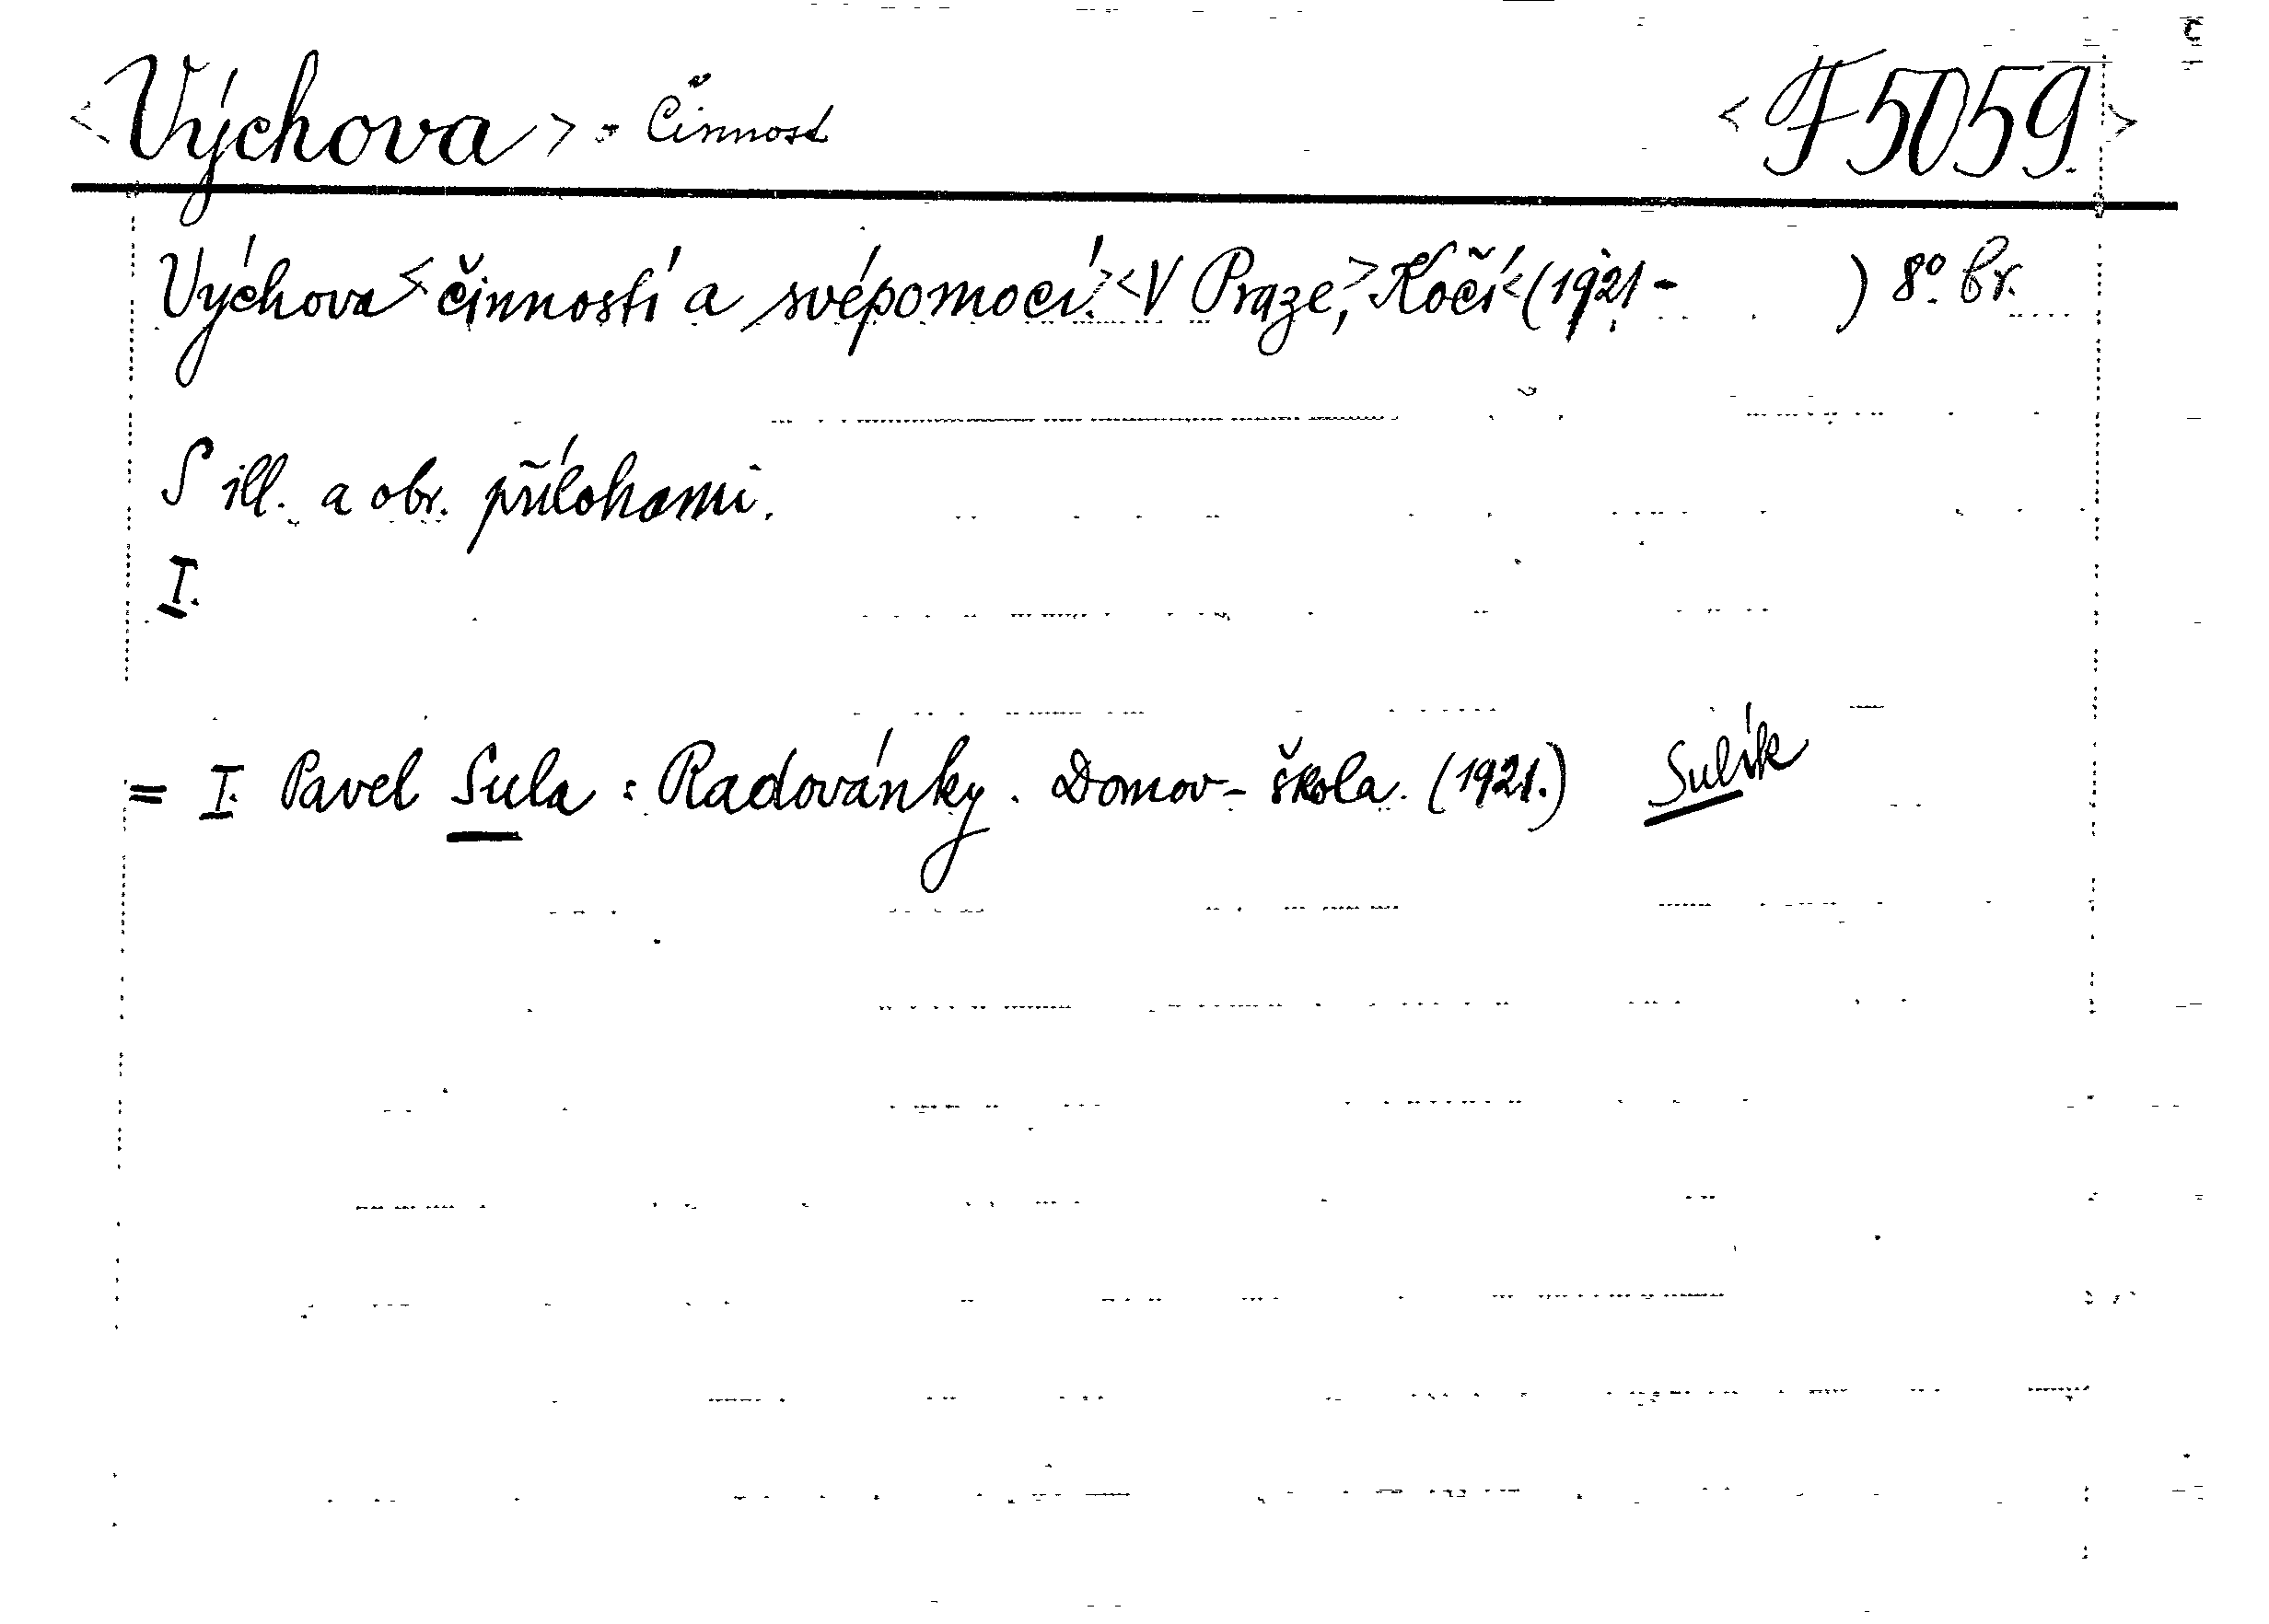 <Výchova> - Činnost <F 5059.>
Výchova < činností a svépomocí. > < V Praze, > Kočí < (1921 - ) 8º. br.
S ill. a obr. přílohami.
I.
= I. Pavel Sula : Radovánky. Domov - škola. (1921.) Sulík